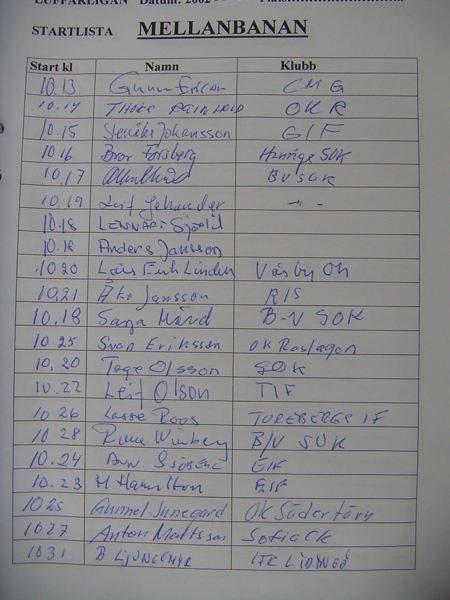 LUFFARLIGAN Datum: 2002
STARTLISTA MELLANBANAN
Start kl Namn Klubb
10.13 Gunnar Ericson CMG
10.14 OKR
10.15 Johansson GIF
10 16 Bror Forsberg Haninge SOK
10.17 BVSOK
10.19 Leif - " -
10.18 LENNART
10.18 Anders Jansson
10 20 Lars Erik Lindén Väsby OK
10.21 Åke Jansson RIS
10.18 Sanja Hård B-V SOK
10 25 Sven Eriksson OK Roslagen
10.20 Tage Olsson SOK
10.22 Leif Olson TIF
10 26 Lasse Roos TUREBERGS IF
10 28 Rune Winberg B/V SOK
10.24 EIF
10.23 M Hamilton EIF
10 25 Gunnel Junegard OK Södertörn
10 27 Anton Mattsson Sofia CK
10 31 B IFK LIDINGÖ